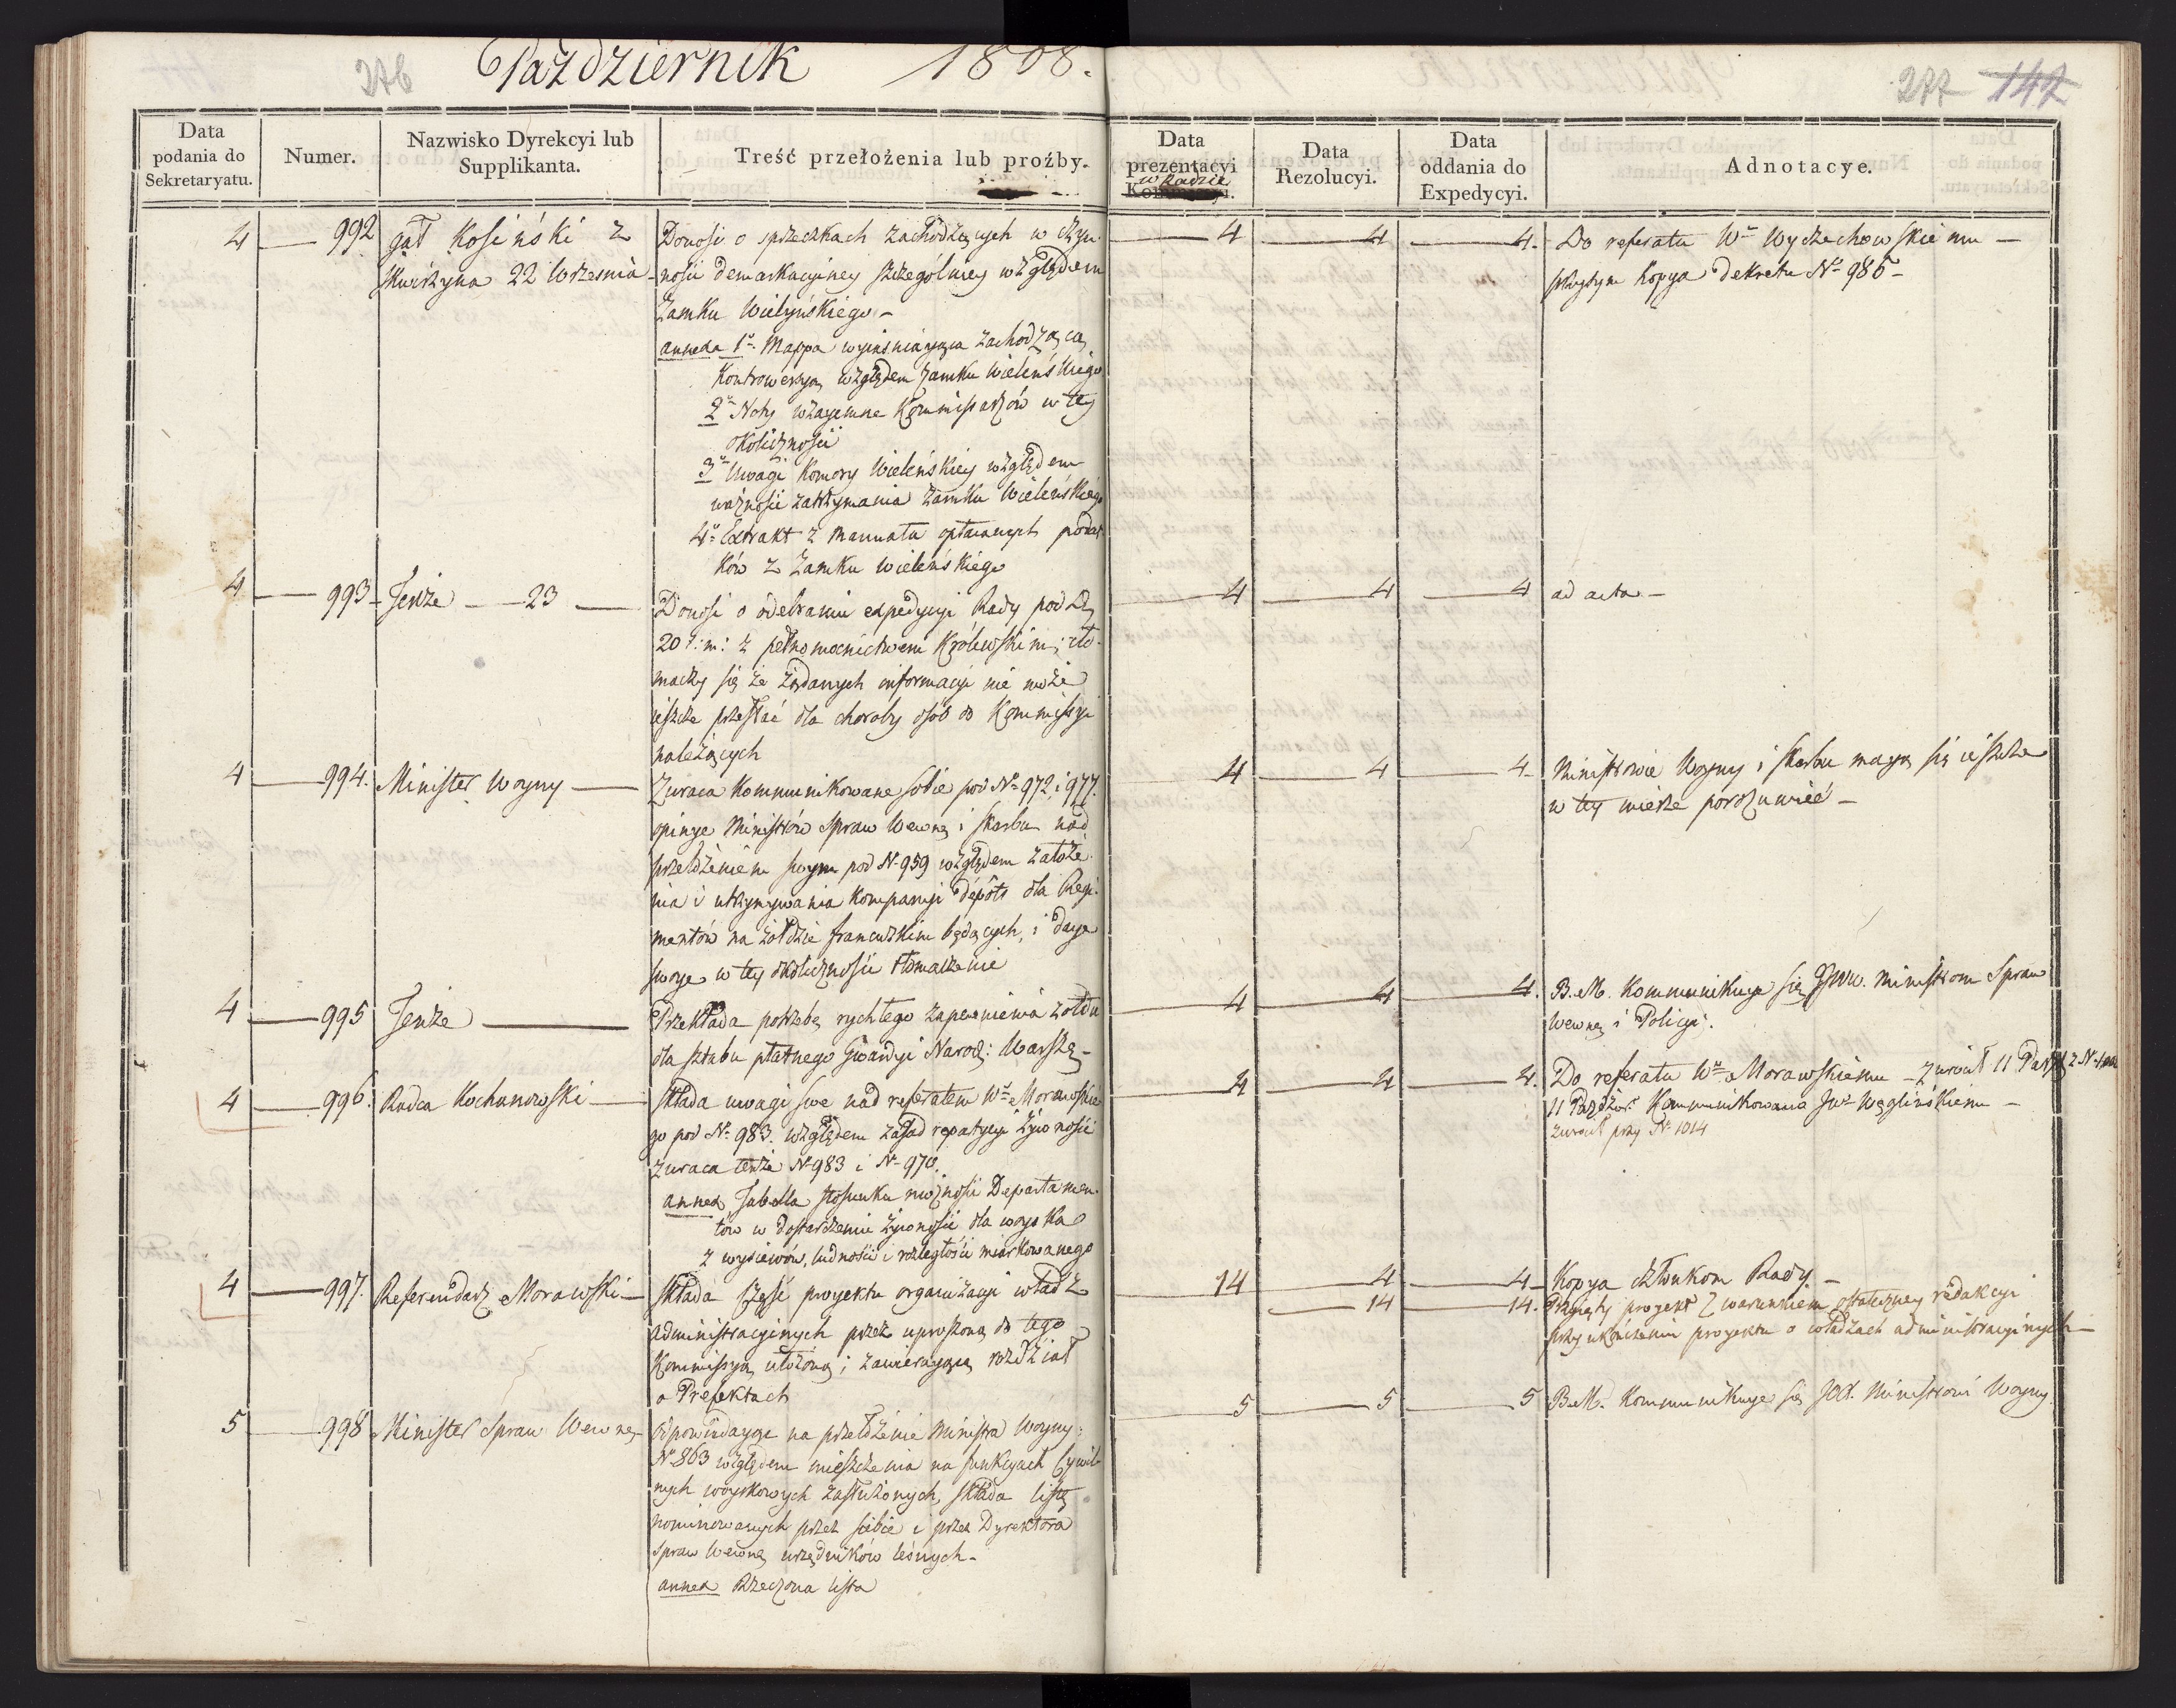 276
Październik 1808.
277 147
Data podania do Sekretaryatu.
Numer.
Nazwisko Dyrekcyi lub Supplikanta.
Treść przełożenia lub proźby.
Data prezentacyi w Radzie
Data Rezolucyi.
Data oddania do Expedycyi.
Adnotacye.
4 — 992 Jał Kosiński z
Skwirzyna 22 Września
Donosi o sprzeczkach zachodzących w czyn-
ności demarkacyiney szczególniey względem
Zamku Wielyńskiego –
annexa 1o Mappa wyiaśniaiąca zachodzącą
Kontrowersyą względem zamku Wieleńskiego
2o Noty wzaiemne Kommissarzów w tey
okoliczności
3o Uwagi Komory Wieleńskiey względem
ważności zatrzymania Zamku Wieleńskiego
4o Extrakt z Manuału opłacanych podat
ków z Zamku Wieleńskiego
4 4 4. Do referatu Wu Wyczechowskiemu —
przytym kopya Dekretu No 985 –
4 — 993 – Tenże — 23 —
Donosi o odebraniu expedycyi Rady pod D.
20 t: m: z pełnomocnictwem Królewskim; tło-
maczy się że żądanych informacyi nie może
ieszcze przesłać dla choroby osób do Kommissyi
należących
4 4 4 ad acta –
4 — 994. Minister Woyny —
Zwraca kommunikowane sobie pod No 972 i 977.
opinye Ministrów Spraw Wewnę i Skarbu nad
przełożeniem swym pod No 959 względem założe-
nia i utrzymywania kompanyi dépôts dla Regi-
mentów na żołdzie francuzkim będących, i daye
swoye w tey okoliczności tłomaczenie
4 4 4. Ministrowie Woyny i Skarbu maią się ieszcze
w tey mierze porozumieć –
4 — 995 Tenże —
Przekłada potrzebę rychłego zapewnienia żołdu
dla sztabu płatnego Gwardyi Narod: Warszę –
4 4 4. B.M. kommunikuye się JWW. Ministrom Spraw
Wewnę i Policyi.
4 — 996. Radca Kochanowski —
Składa uwagi swe nad referatem Wo Morawskie
go pod No 983. względem zasad repartycyi żywności
zwraca tenże No 983 i No 970.
annex Tabella stosunku możności Departamen-
tów w dostarczeniu żywności dla woyska
z wysiewów, ludności i rozległości miarkowanego
4 4 4. Do referatu Wu Morawskiemu – zwrócił 11 Paźdź z No
11 Paźdźer: Kommunikowano JWu Węglińskiemu –
zwrócił przy No 1014
4 — 997. Referendarz Morawski —
Składa część proyektu organizacyi władz
administracyinych przez uproszoną do tego
Kommissyą ułożoną i zawieraiącą rozdział
o Prefektach
14 4 4 – Kopya członkom Rady. –
14 14. Przyięty proyekt z warunkiem ostateczney redakcyi
przy ukończeniu proyektu o władzach administracyinych –
5 998 Minister Spraw Wewnę –
Odpowiadaiąc na przełożenie Ministra Woyny
No 863 względem mieszczenia na funkcyach cywil-
nych woyskowych zasłużonych, składa listę
nominowanych przez siebie i przez Dyrektora
Spraw Wewnę urzędników leśnych –
annex Rzeczona lista
5 5 5 B.M. Kommunikuye się Ministrowi Woyny.